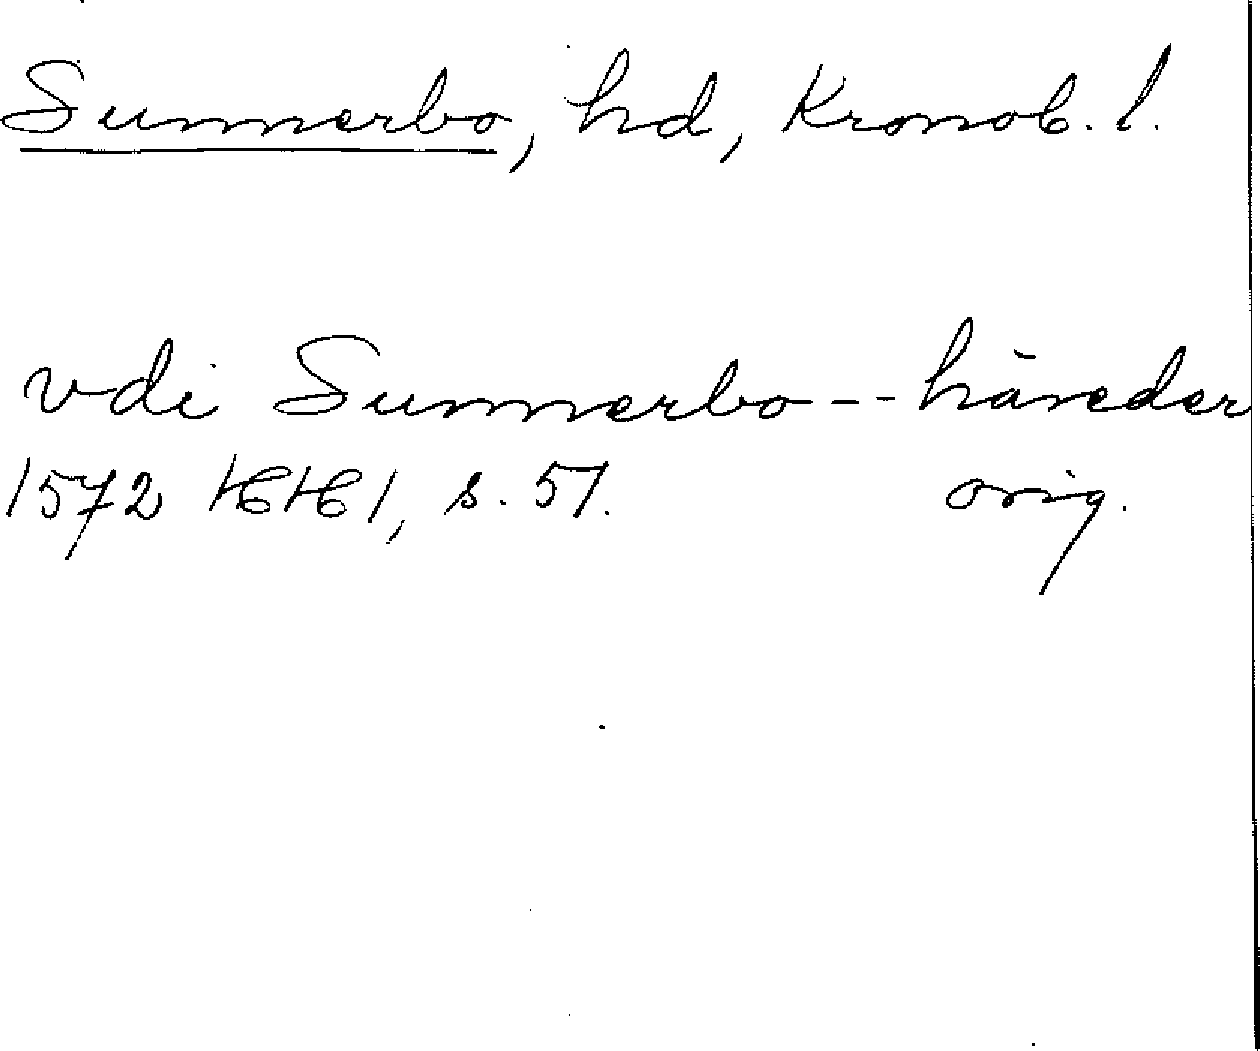 Sunnerbo, hd, Kronob. l.
vdi Sunnerbo -- häreder
1572 HH1, s. 51. orig.